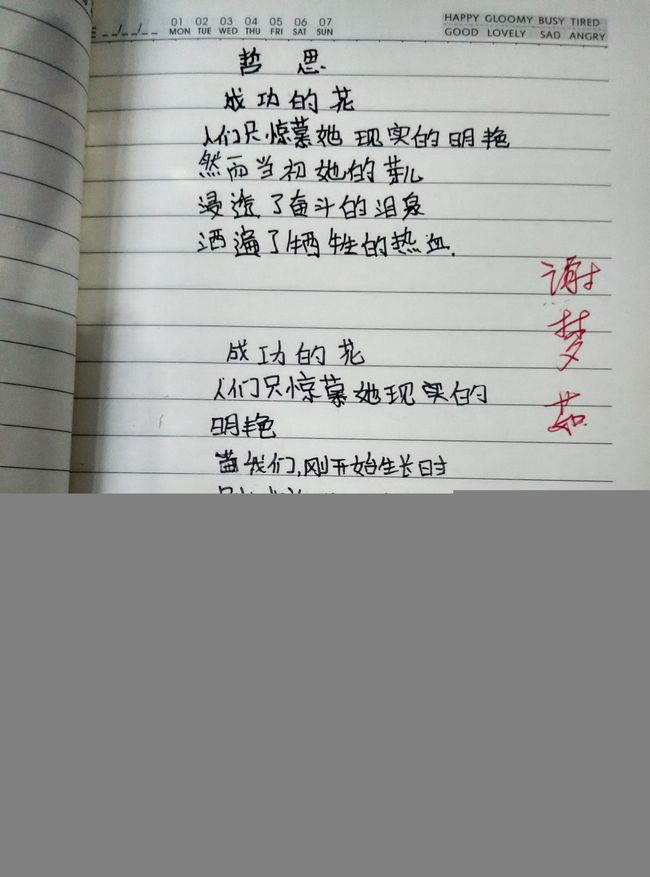 01 02 03 04 05 06 07
MON TUE WED THU FRI SAT SUN
HAPPY GLOOMY BUSY TIRED
GOOD LOVELY SAD ANGRY
哲思
成功的花
人们只惊慕她现实的明艳
然而当初她的芽儿
浸透了奋斗的泪泉
洒遍了牺牲的热血.
谢梦茹
成功的花
人们只惊慕她现实的
明艳
当我们,刚开始生长时